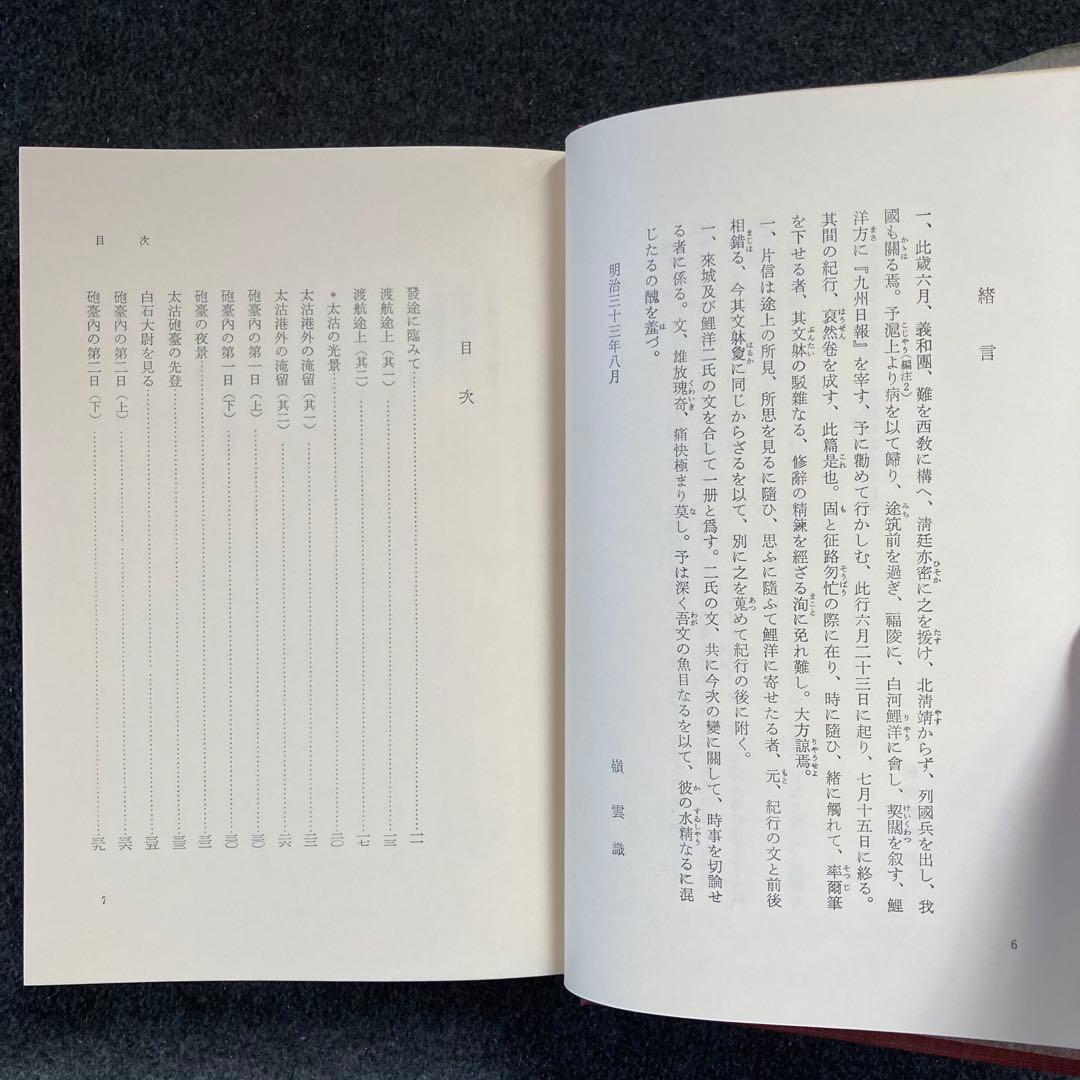 緒言
一、此歲六月、義和團、難を西敎に構へ、淸廷亦密に之を援け、北淸靖からず、列國兵を出し、我
國も關る焉。予滬上より病を以て歸り、途筑前を過ぎ、福陵に、白河鯉洋に會し、契闊を叙す、鯉
洋方に『九州日報』を宰す、予に勸めて行かしむ、此行六月二十三日に起り、七月十五日に終る。
其間の紀行、裒然卷を成す、此篇是也。固と征路匆忙の際に在り、時に隨ひ、緒に觸れて、率爾筆
を下せる者、其文躰の駁雜なる、修辭の精鍊を經ざる洵に免れ難し。大方諒焉。
一、片信は途上の所見、所思を見るに隨ひ、思ふに隨ふて鯉洋に寄せたる者、元、紀行の文と前後
相錯る、今其文躰夐に同じからざるを以て、別に之を蒐めて紀行の後に附く。
一、來城及び鯉洋二氏の文を合して一册と爲す。二氏の文、共に今次の變に關して、時事を切論せ
る者に係る。文、雄放瑰奇、痛快極まり莫し。予は深く吾文の魚目なるを以て、彼の水精なるに混
じたるの醜を羞づ。
明治三十三年八月
嶺雲識
6
目次
發途に臨みて……一一
渡航途上（其一）……一三
渡航途上（其二）……一七
*太沽の光景……二〇
太沽港外の淹留（其一）……二三
太沽港外の淹留（其二）……二六
砲臺內の第一日（上）……三〇
砲臺內の第一日（下）……三〇
砲臺の夜景……三三
太沽砲臺の先登……三三
白石大尉を見る……三五
砲臺內の第二日（上）……三六
砲臺內の第二日（下）……三九
目次
7